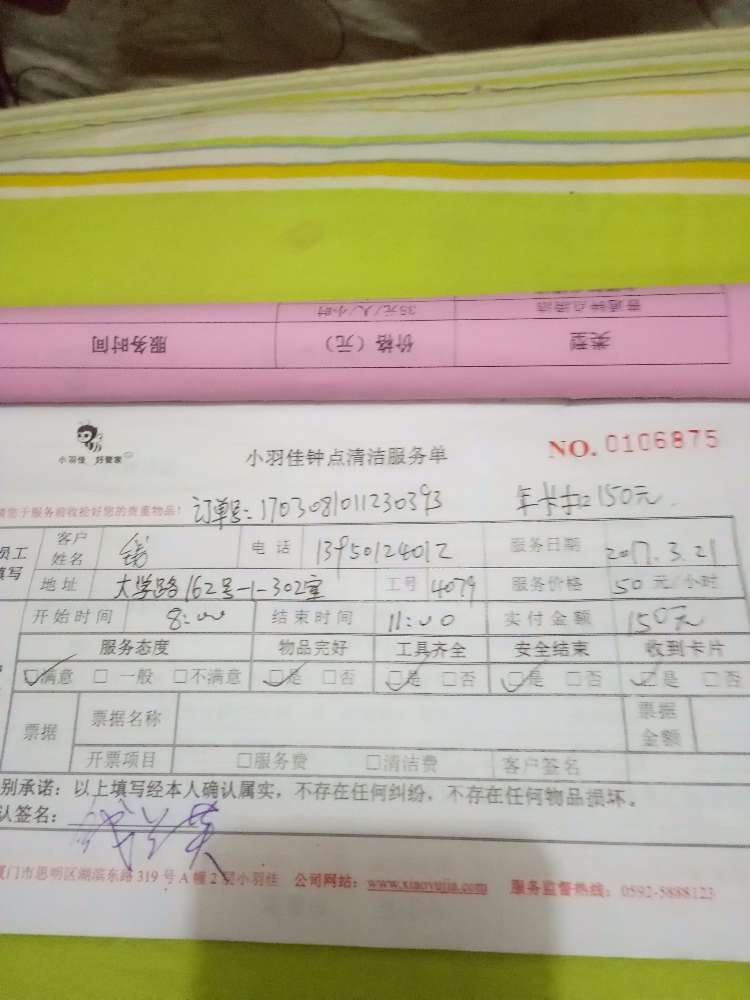 普通钟点清洁 35元/人/小时
类型 价格（元） 服务时间
小羽佳 好管家
小羽佳钟点清洁服务单
NO. 0106875
请您于服务前收捡好您的贵重物品！ 订单号：1703081011230393 年卡扣150元
员工填写 客户姓名 钱 电话 13950124012 服务日期 2017.3.21
地址 大学路162号-1-302室 工号 4079 服务价格 50元/小时
开始时间 8:00 结束时间 11:00 实付金额 150元
服务态度 物品完好 工具齐全 安全结束 收到卡片
☑满意 □一般 □不满意 ☑是 □否 ☑是 □否 ☑是 □否 ☑是 □否
票据 票据名称 票据金额
开票项目 □服务费 □清洁费 客户签名
别承诺：以上填写经本人确认属实，不存在任何纠纷，不存在任何物品损坏。
认签名：
厦门市思明区湖滨东路319号A幢2层小羽佳 公司网站：www.xiaoyujia.com 服务监督热线：0592-5888123